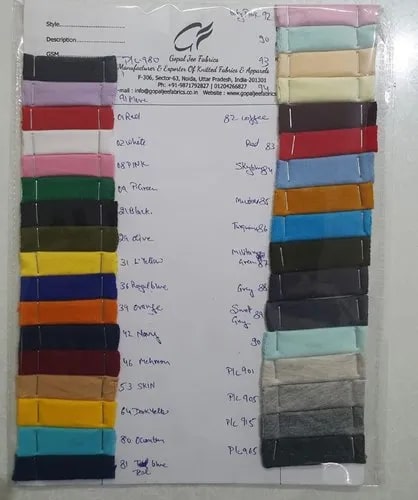 Style
Description
GSM
P/c-980
GF
Gopal Jee Fabrics
Manufacturer & Exporter Of Knitted Fabrics & Apparels
F-306, Sector-63, Noida, Uttar Pradesh, India-201301
Ph: +91-9871792827 | 01204266827
info@gopaljeefabrics.co.in Website : www.gopaljeefabrics
91 Move
01 Red
02 White
08 PINK
09 P.Green
21 Black
29 Olive
31 L.Yellow
36 Royal blue
39 Orange
42 Navy
46 Mehroon
53 SKIN
64 Dark Yellow
80
81 blue
92
90
93
94
82 Coffee
Red 83
Sky blue 84
Mustard 85
86
Green 87
Grey 88
Grey 89
90
P/c 901
P/c 905
P/c 915
P/c 965